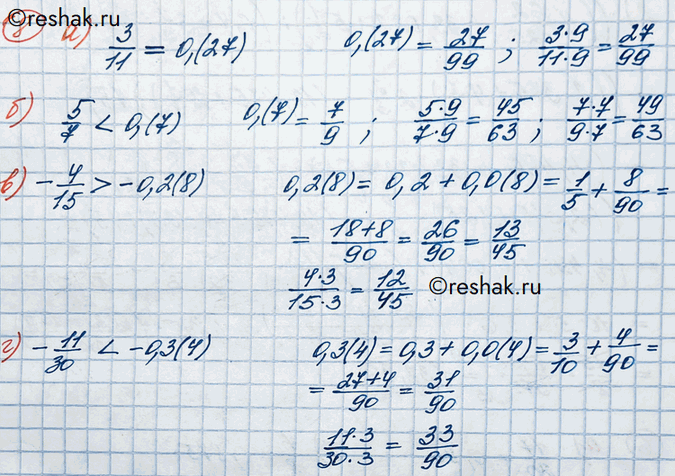 ©reshak.ru
8 а) 3/11 = 0,(27) 0,(27) = 27/99 ; 3·9/11·9 = 27/99
б) 5/7 < 0,(7) 0,(7) = 7/9 ; 5·9/7·9 = 45/63 ; 7·7/9·7 = 49/63
в) -4/15 > -0,2(8) 0,2(8) = 0,2 + 0,0(8) = 1/5 + 8/90 =
= 18+8/90 = 26/90 = 13/45
4·3/15·3 = 12/45 ©reshak.ru
г) -11/30 < -0,3(4) 0,3(4) = 0,3 + 0,0(4) = 3/10 + 4/90 =
= 27+4/90 = 31/90
11·3/30·3 = 33/90
©reshak.ru